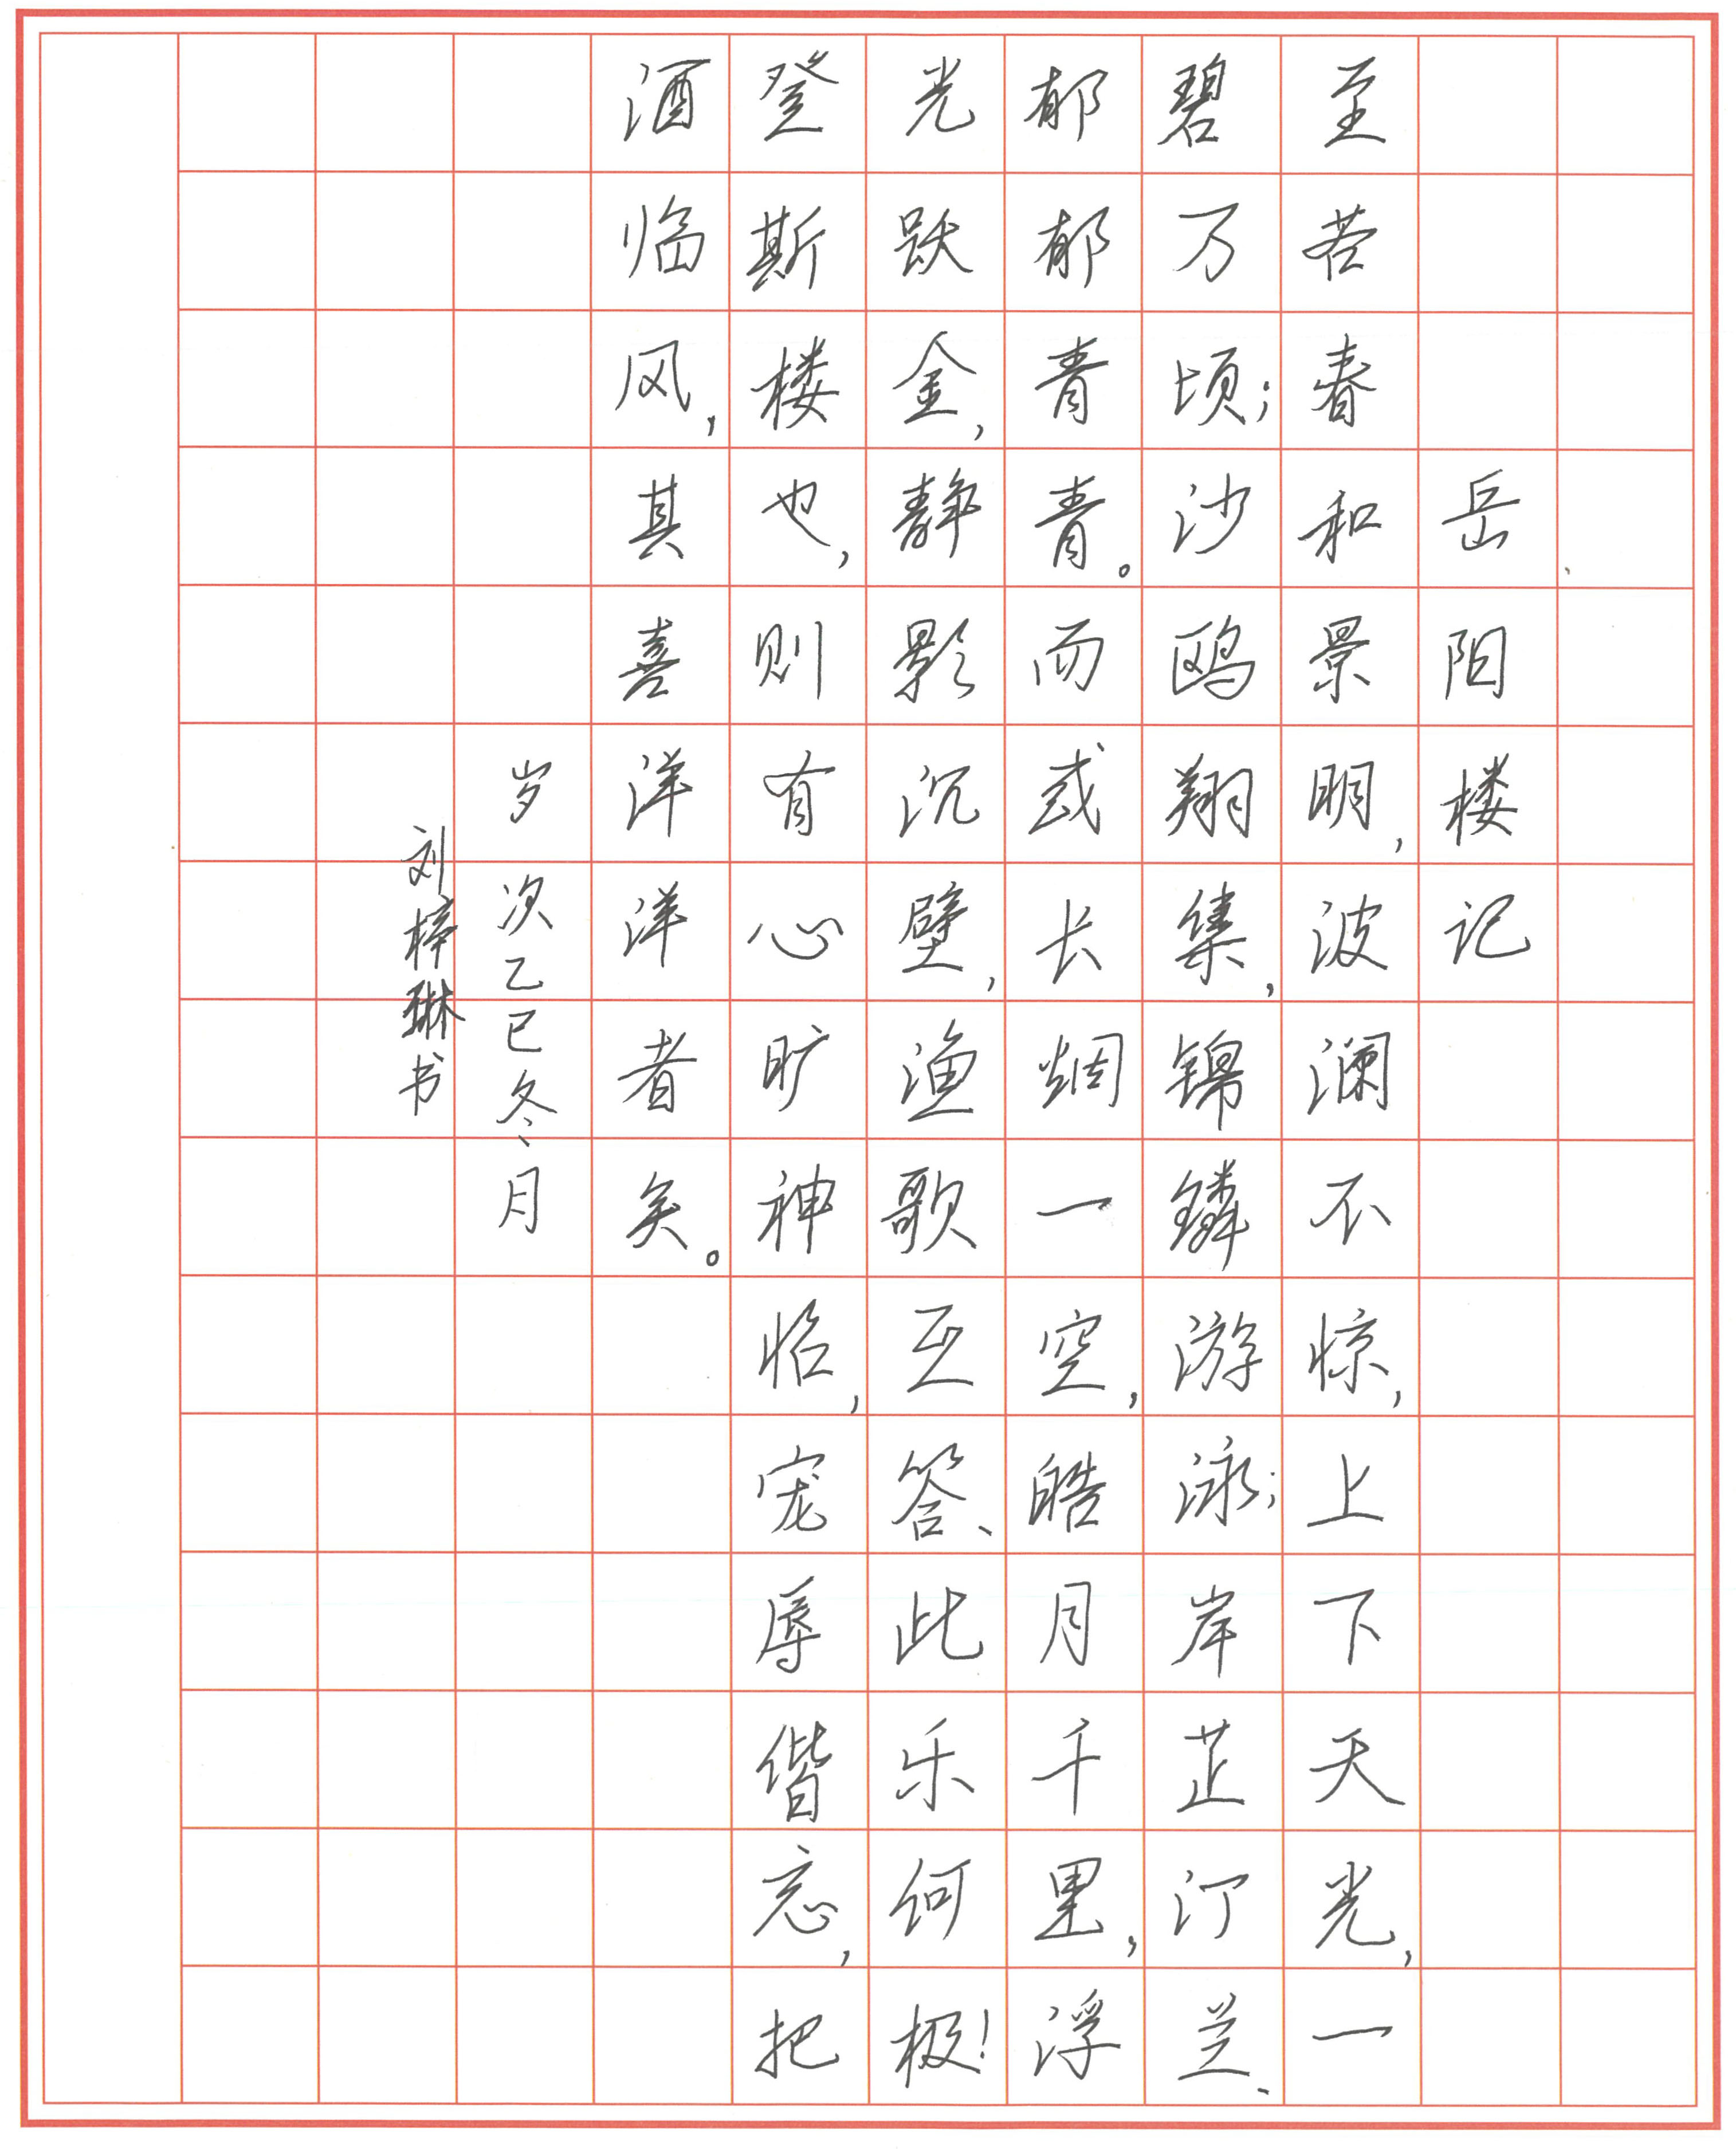 岳阳楼记
至若春和景明，波澜不惊，上下天光，一
碧万顷；沙鸥翔集，锦鳞游泳；岸芷汀兰、
郁郁青青。而或长烟一空，皓月千里，浮
光跃金，静影沉璧，渔歌互答、此乐何极！
登斯楼也，则有心旷神怡，宠辱偕忘，把
酒临风，其喜洋洋者矣。
岁次乙巳冬月
刘梓琳书